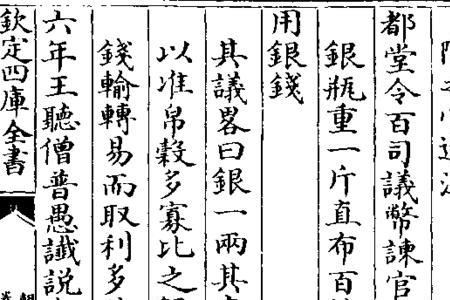 都堂令百司議幣諫官
銀瓶重一斤直布百
用銀錢
其議畧曰銀一兩其
以准帛穀多寡比之
錢輸轉易而取利多
六年王聽僧普愚讖説
欽定四庫全書